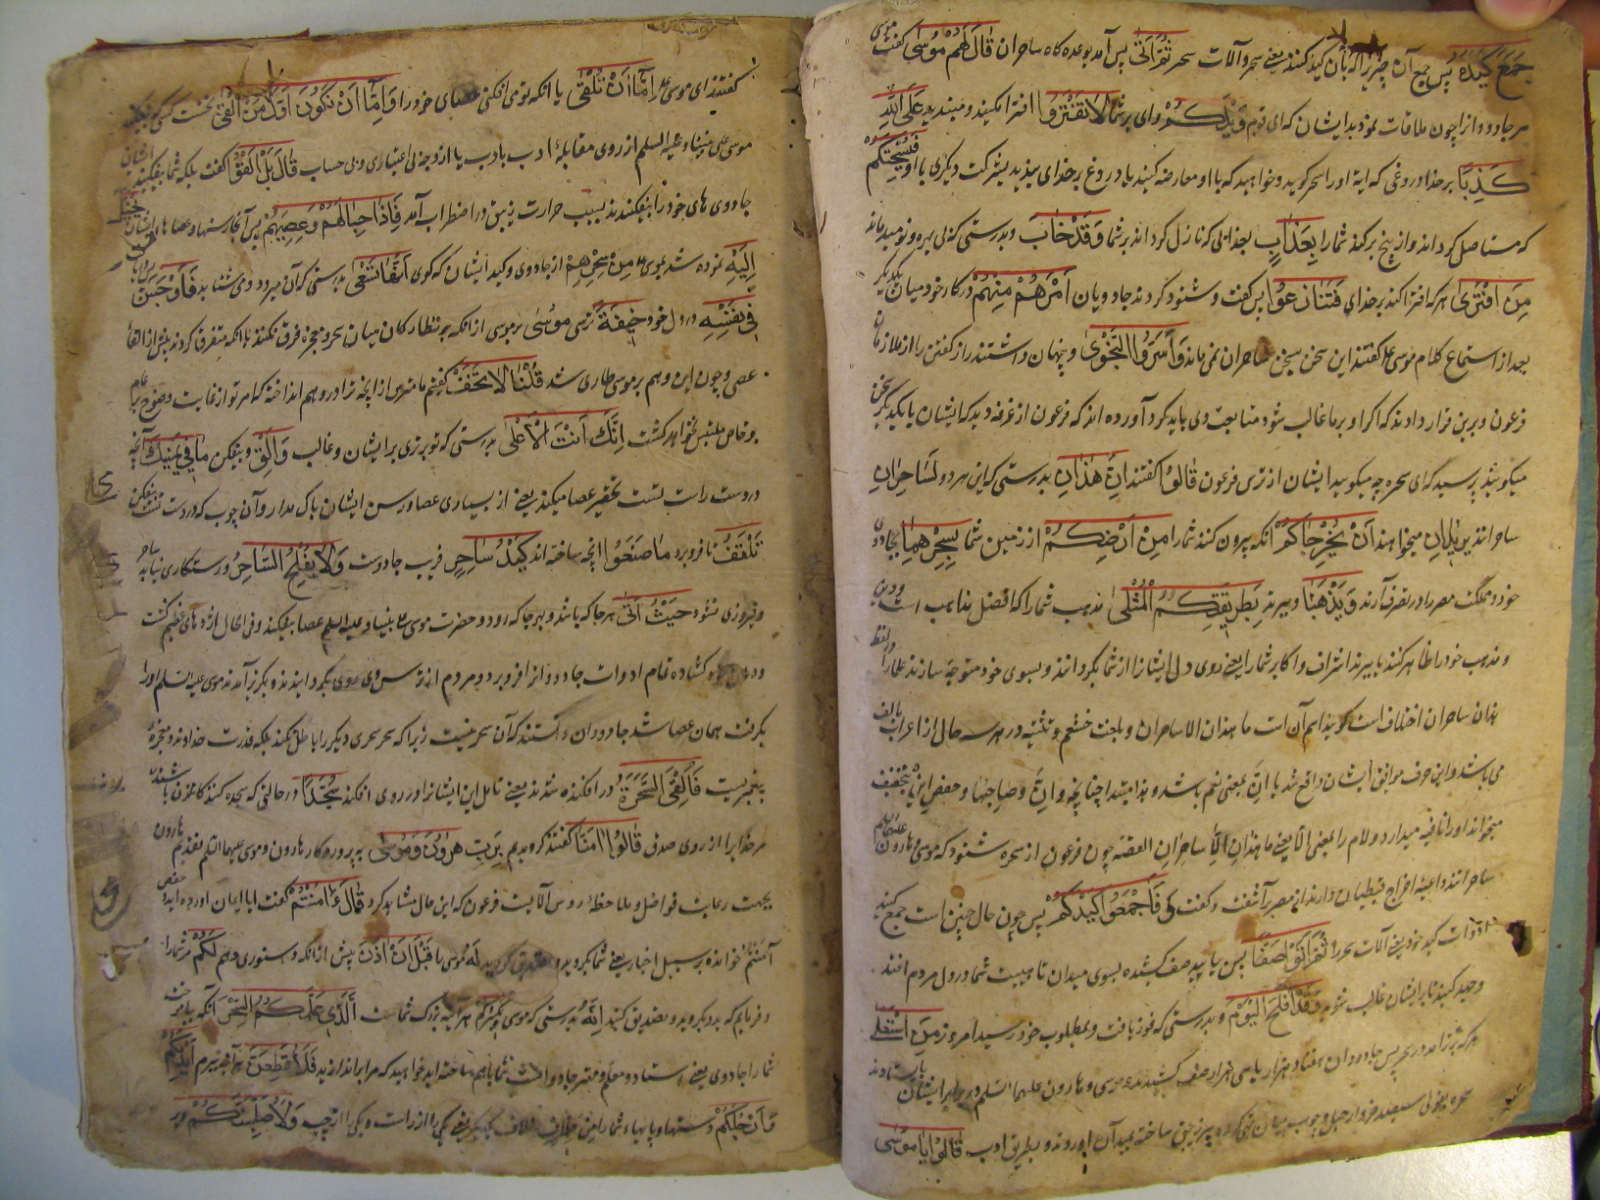 جَمَعَ كَيْدَهُ پس جمع آن چیز را که بآن کید کنند یعنی سحر و آلات سحر ثُمَّ أَتَى پس آمد بوعده کاه ساحران قَالَ لَهُمْ مُوسَى کفت موسی
مر جادوانرا چون ملاقات نمود بدایشان که ای قوم وَيْلَكُمْ وای بر شما لَا تَفْتَرُوا افترا مکنید و مبندید عَلَى اللَّهِ
كَذِبًا بر خدا دروغی که آیة او را سحر کویید و خواهید که با او معارضه کنید یا دروغ بر خدای مبندید بشرکت دیکری با او فَيُسْحِتَكُمْ
که مستاصل کرداند و از بیخ برکند شما را بِعَذَابٍ بعذابی که نازل کرداند بر شما وَقَدْ خَابَ و بدرستی که بی بهره و نومید ماند
مَنِ افْتَرَى هر که افترا کند بر خدای فَتَنَازَعُوا پس کفت و شنود کردند جادویان أَمْرَهُمْ بَيْنَهُمْ در کار خود میان یکدیکر
بعد از استماع کلام موسی کفتند این سخن سخن ساحران نمی ماند وَأَسَرُّوا النَّجْوَى و پنهان داشتند راز کفتن را از ملازمان
فرعون و برین قرار دادند که اکر او بر ما غالب شود متابعت وی باید کرد آورده اند که فرعون از غرفه دید که ایشان با یکدیکر سخن
میکویند پرسید که ای سحره چه میکویید ایشان از ترس فرعون قَالُوا کفتند إِنْ هَذَانِ بدرستی که این هر دو لَسَاحِرَانِ
ساحرانند يُرِيدَانِ میخواهند أَنْ يُخْرِجَاكُمْ آنکه بیرون کنند شما را مِنْ أَرْضِكُمْ از زمین شما بِسِحْرِهِمَا بجادوی
خود و مملکت مصر را در تصرف آرند وَيَذْهَبَا و ببرند بِطَرِيقَتِكُمُ الْمُثْلَى مذهب شما را که افضل مذاهب است و دین
و مذهب خود را ظاهر کنند یا ببرند اشراف و اکابر شما را یعنی روی دل ایشانرا از شما بکردانند و بسوی خود متوجه سازند علما را در لفظ
هذان ساحران اختلاف است ما هذان الا ساحران و بلغت خثعم و تثنیه در هر سه حال از اعراب بالف
می باشد و این حرف موافق ایشان واقع شد یا إنّ بمعنی نعم باشد و حفص إن بتخفیف
میخواند و او را نافیه میدارد و لام را بمعنی الّا یعنی ما هذان الّا ساحران القصه چون فرعون از سحره شنود که موسی و هارون علیهما السلام
ساحرانند و داعیه اخراج قبطیان دارند از مصر برآشفت و کفت فَأَجْمِعُوا كَيْدَكُمْ پس چون حال چنین است جمع کنید
ادوات کید خود یعنی آلات سحر را ثُمَّ ائْتُوا صَفًّا پس بیایید صف کشیده بسوی میدان تا هیبت شما در دل مردم افتد
و جهد کنید تا بر ایشان غالب شوید وَقَدْ أَفْلَحَ الْيَوْمَ و بدرستی که فوز یافت و بمطلوب خود رسید امروز مَنِ اسْتَعْلَى
هر که برتر آمد در سحر پس جادوان هفتاد هزار صف کشیدند و موسی و هارون علیهما السلام در برابر ایشان بایستادند
سحره سیصد خروار ساخته بمیدان آوردند و بطریق ادب قَالُوا يَا مُوسَى
کفتند ای موسی إِمَّا أَنْ تُلْقِيَ یا آنکه تو می افکنی عصای خود را وَإِمَّا أَنْ نَكُونَ أَوَّلَ مَنْ أَلْقَى نخست کسی که بیفکند
موسی علی نبینا و علیه السلام از روی مقابلهٔ ادب بادب یا از وجه بی اعتباری و بی حساب قَالَ بَلْ أَلْقُوا کفت بلکه شما بیفکنید ایشان
جادوی های خود را بیفکندند بسبب حرارت زیبق در اضطراب آمد فَإِذَا حِبَالُهُمْ وَعِصِيُّهُمْ پس آنکاه رسنها و عصاهای ایشان يُخَيَّلُ
إِلَيْهِ نموده شد بموسی مِنْ سِحْرِهِمْ از جادوی و کید ایشان که کوی أَنَّهَا تَسْعَى بدرستی که آن میرود و می شتابد فَأَوْجَسَ
فِي نَفْسِهِ در دل خود خِيفَةً ترسی مُوسَى بر موسی از آنکه نظارکان میان سحر و معجزه فرق نکنند یا آنکه متفرق کردند پیش از القاء
عصی و چون این وهم بر موسی طاری شد قُلْنَا لَا تَخَفْ کفتیم ما مترس از آنچه ترا در وهم انداخته که امر تو از غایت وضوح بر عام
و خاص ملتبس نخواهد کشت إِنَّكَ أَنْتَ الْأَعْلَى بدرستی که تو برتری بر ایشان و غالب وَأَلْقِ و بیفکن مَا فِي يَمِينِكَ آنچه
در دست راست تست تحقیر عصا میکند یعنی از بسیاری عصا و رسن ایشان باک مدار و آن چوب که در دست تست بیفکن
تَلْقَفْ تا فرو برد مَا صَنَعُوا آنچه ساخته اند كَيْدُ سَاحِرٍ فریب جادوست وَلَا يُفْلِحُ السَّاحِرُ و رستکاری نیابد ساحر
و فیروزی نشود حَيْثُ أَتَى هر جا که باشد و بهر جا که رود و حضرت موسی نبینا و علیه السلام عصا بیفکند و فی الحال اژدهای عظیم کشت
و دهان کشاده تمام ادوات جادوانرا فرو برد و مردم از ترس وی روی بکردانیدند و بکریز آمدند موسی علیه السلام او را
بکرفت همان عصا شد جادوان دانستند که آن سحر نیست زیرا که سحر سحری دیکر را باطل نکند بلکه قدرت خداوند و معجزهٔ
پیغمبریست فَأُلْقِيَ السَّحَرَةُ در افکنده شدند یعنی تامل این ایشانرا در روی افکند سُجَّدًا در حالتی که سجده کنندکان باشند
مر خدایرا از روی صدق قَالُوا آمَنَّا کفتند کرویدیم بِرَبِّ هَارُونَ وَمُوسَى به پروردکار هارون و موسی علیهما السلام تقدیم هارون
بجهت رعایت فواصل و ملاحظه رؤس آلآیست فرعون که این حال مشاهده کرد قَالَ آمَنْتُمْ کفت ایا ایمان آورده اید و حفص
آمنتم خوانده بر سبیل اخبار یعنی شما کرویدید و تصدیق کردید لَهُ موسی را قَبْلَ أَنْ آذَنَ پیش از آنکه دستوری دهم لَكُمْ مر شما را
و فرمایم که بدو بکروید و تصدیق کنید إِنَّهُ بدرستی که موسی لَكَبِيرُكُمُ هر آینه بزرک شماست الَّذِي عَلَّمَكُمُ السِّحْرَ آنکه بیاموخت
شما را جادوی یعنی استاد و معلم و مهتر جادوانست شما باهم ساخته اید فَلَأُقَطِّعَنَّ هر آینه ببرم أَيْدِيَكُمْ
وَأَرْجُلَكُمْ دستها و پایهاء شما را مِنْ خِلَافٍ خلاف یکدیکر یعنی یکی را از راست و یکی از چپ وَلَأُصَلِّبَنَّكُمْ و بر